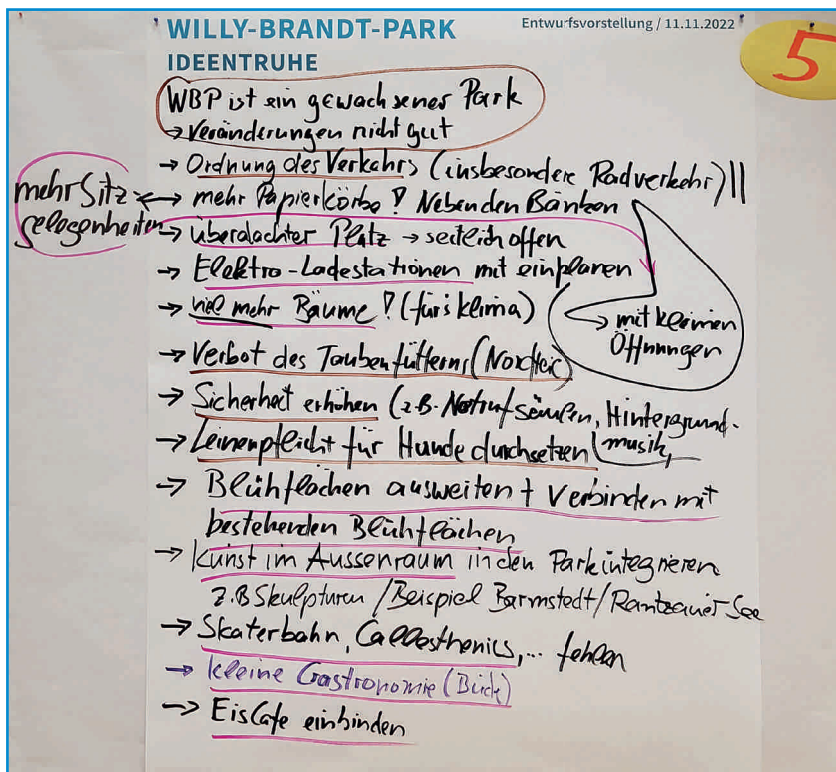 WILLY-BRANDT-PARK
Entwurfsvorstellung / 11.11.2022
IDEENTRUHE
5
WBP ist ein gewachsener Park
→ Veränderungen nicht gut
→ Ordnung des Verkehrs (insbesondere Radverkehr) ||
mehr Sitz
gelegenheiten
→ mehr Papierkörbe! Neben den Bänken
→ mit kleinen
Öffnungen
→ überdachter Platz → seitlich offen
→ Elektro-Ladestationen mit einplanen
→ viel mehr Bäume! (für's klima)
→ Verbot des Taubenfütterns (Nordteic)
→ Sicherheit erhöhen (z.B. Notrufsäulen, Hintergrund-
musik,
→ Leinenpflicht für Hunde durchsetzen
→ Blühflächen ausweiten + Verbinden mit
bestehenden Blühflächen
→ Kunst im Aussenraum in den Park integrieren
z.B Skulpturen / Beispiel Barmstedt / Rantzauer See
→ Skaterbahn, Callesthenics, ... fehlen
→ kleine Gastronomie
→ Eis Cafe einbinden